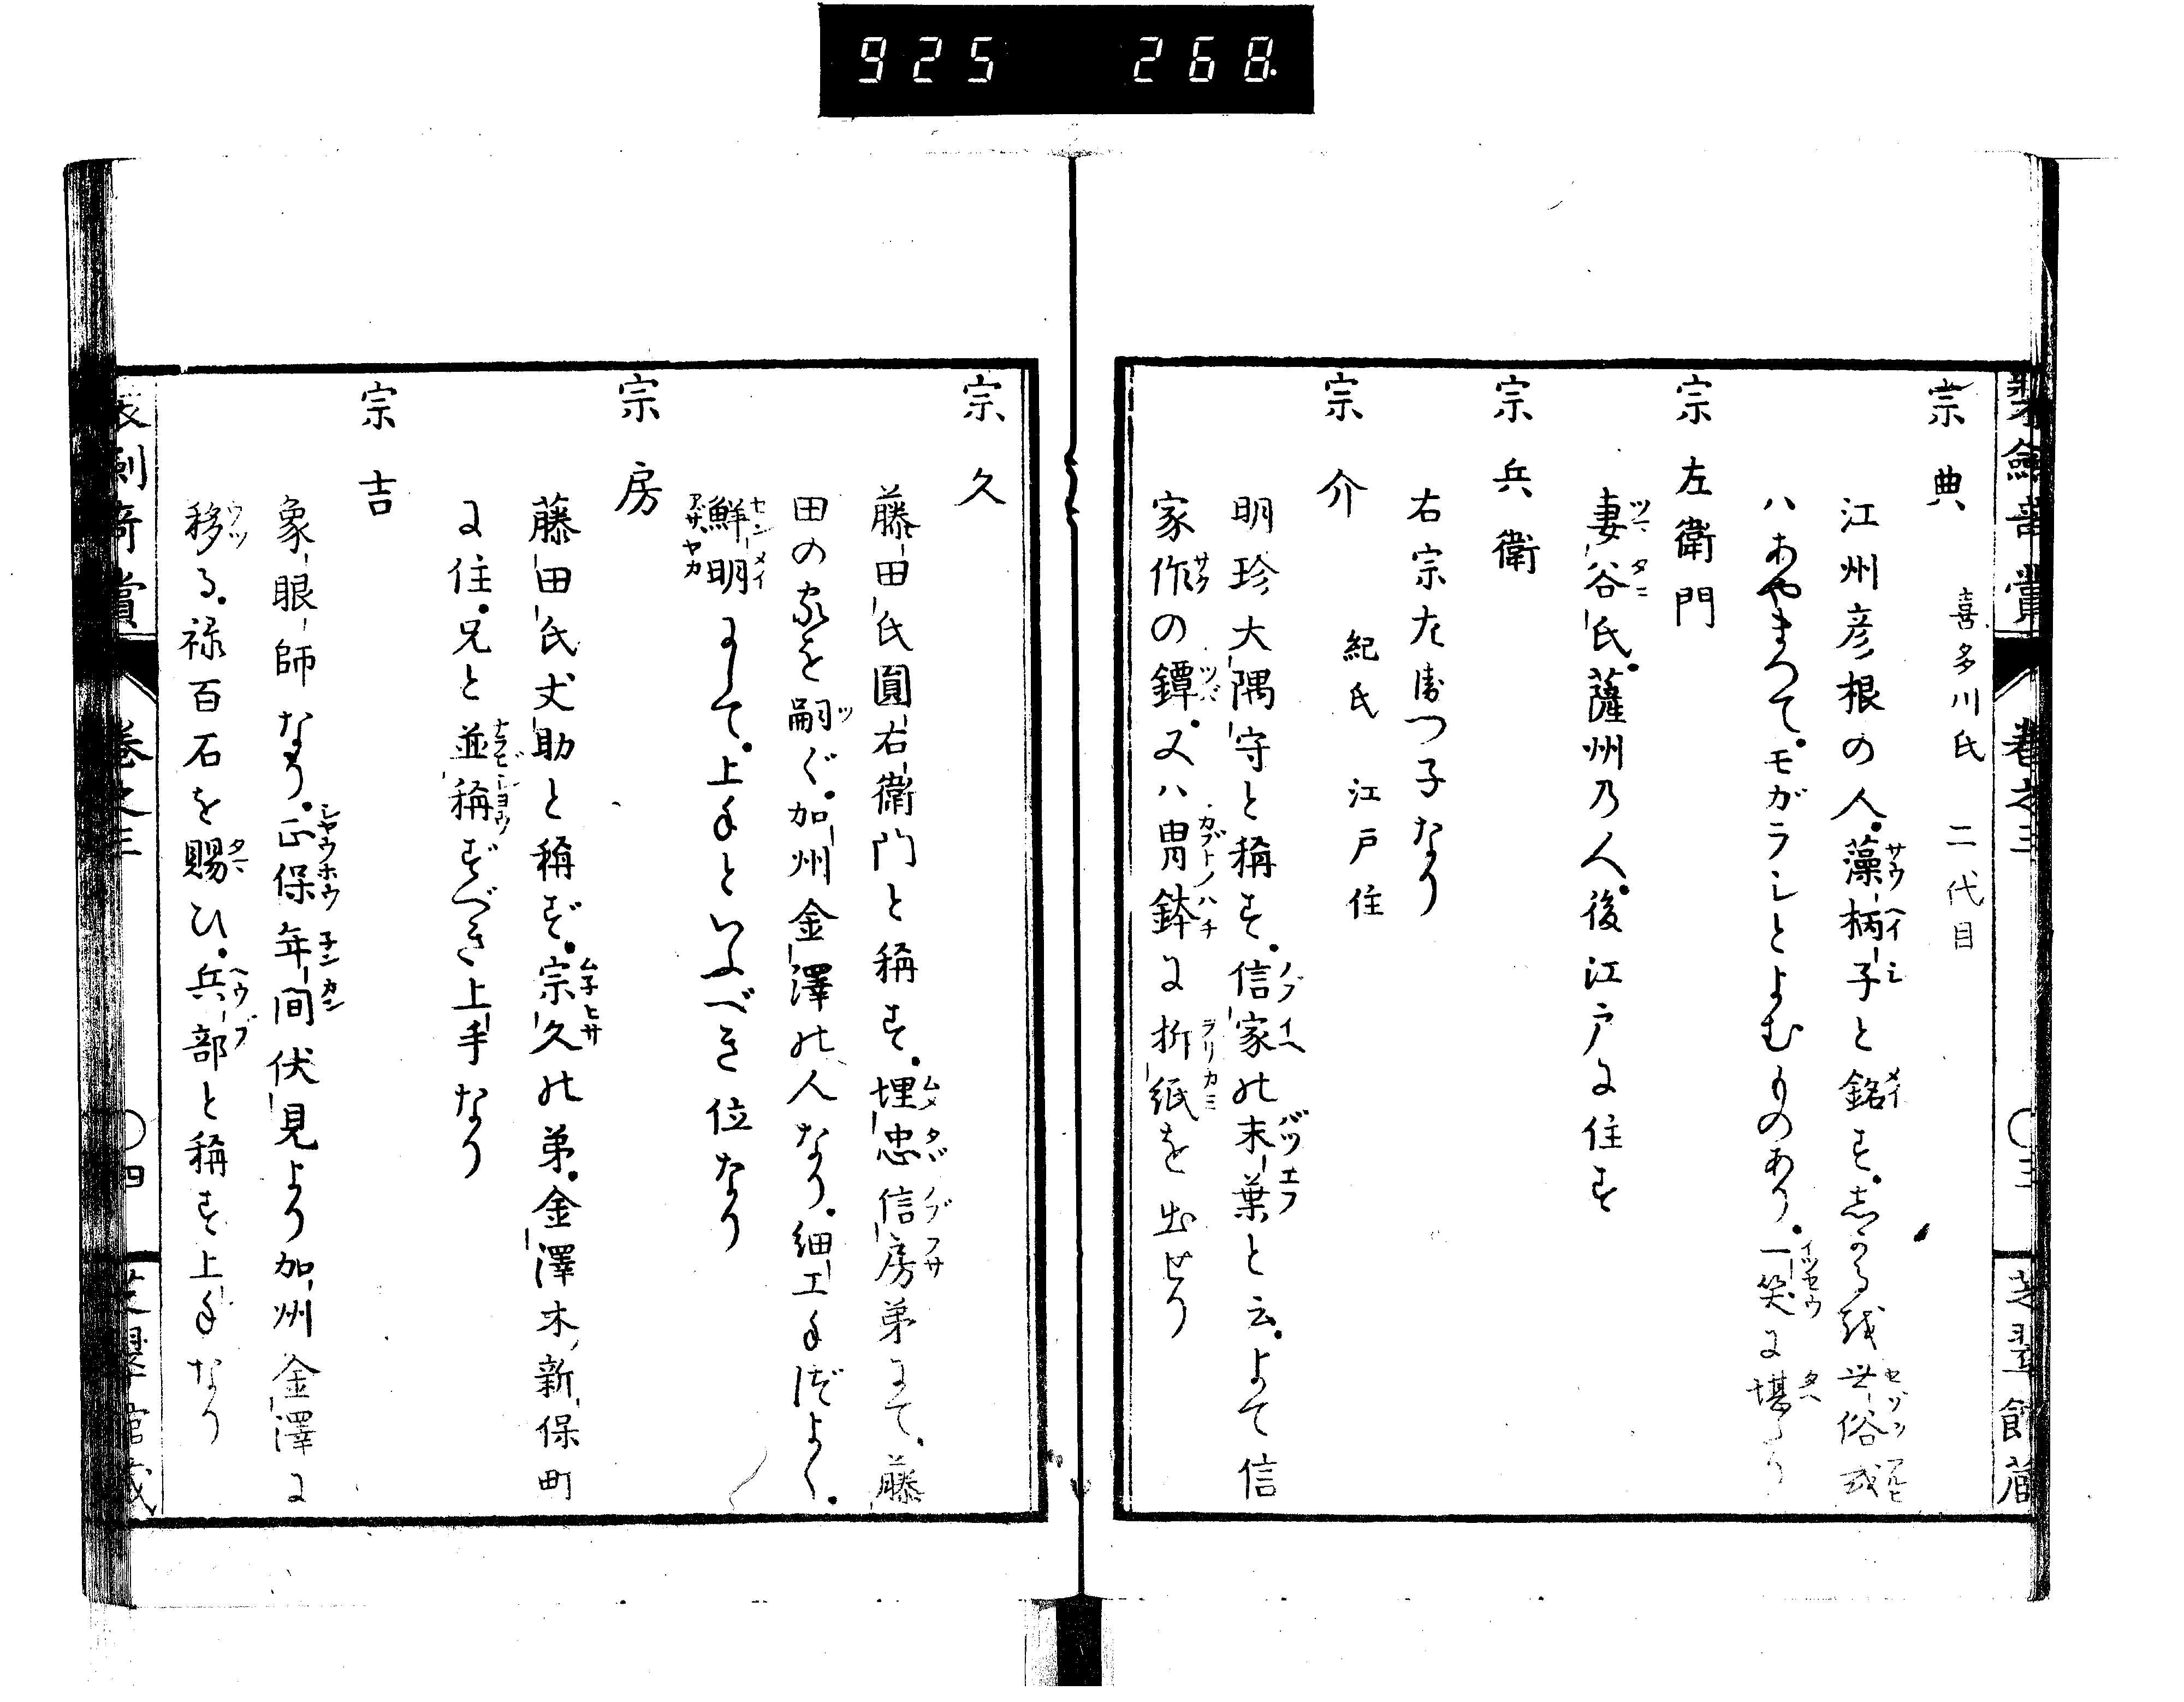 925 268
宗典 喜多川氏 二代目
江州彦根の人。藻柄子と銘す。志かる越世俗或
ハあやまつて。モガラシとよむものあり。一笑に堪たり
宗左衛門
妻谷氏。薩州乃人。後江戸に住す
宗兵衛
右宗左衛つ子なり
宗介 紀氏 江戸住
明珍大隅守と稱す。信家の末葉と云。よて信
家作の鐔。又ハ冑鉢に折紙を出せり
宗久
藤田氏圓右衛門と稱す。埋忠信房弟にて、藤
田の家を嗣ぐ。加州金澤の人なり。細工手ぎはよく。
鮮明にして。上手といふべき位なり
宗房
藤田氏丈助と稱ず。宗久の弟。金澤木新保町
に住。兄と並稱ずべき上手なり
宗吉
象眼師なり。正保年間伏見より加州金澤に
移る。禄百石を賜ひ。兵部と稱す上手なり
卷之三